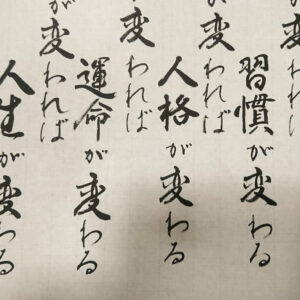 われば
が変われば
習慣が変わる
が変われば
人格が変わる
が変われば
運命が変わる
が変われば
人生が変わる